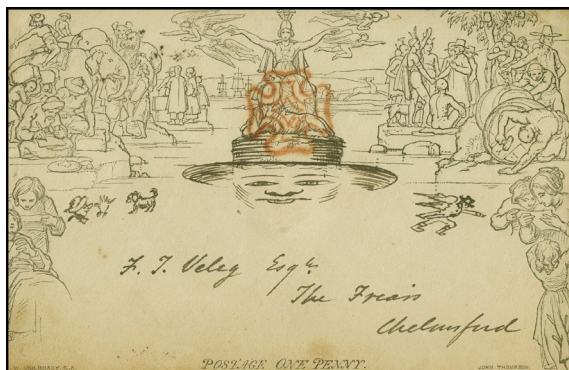 F. T. Veley Esqre
The Friars
Chelmsford
W. MULREADY. R.A.
POSTAGE ONE PENNY.
JOHN THOMPSON.